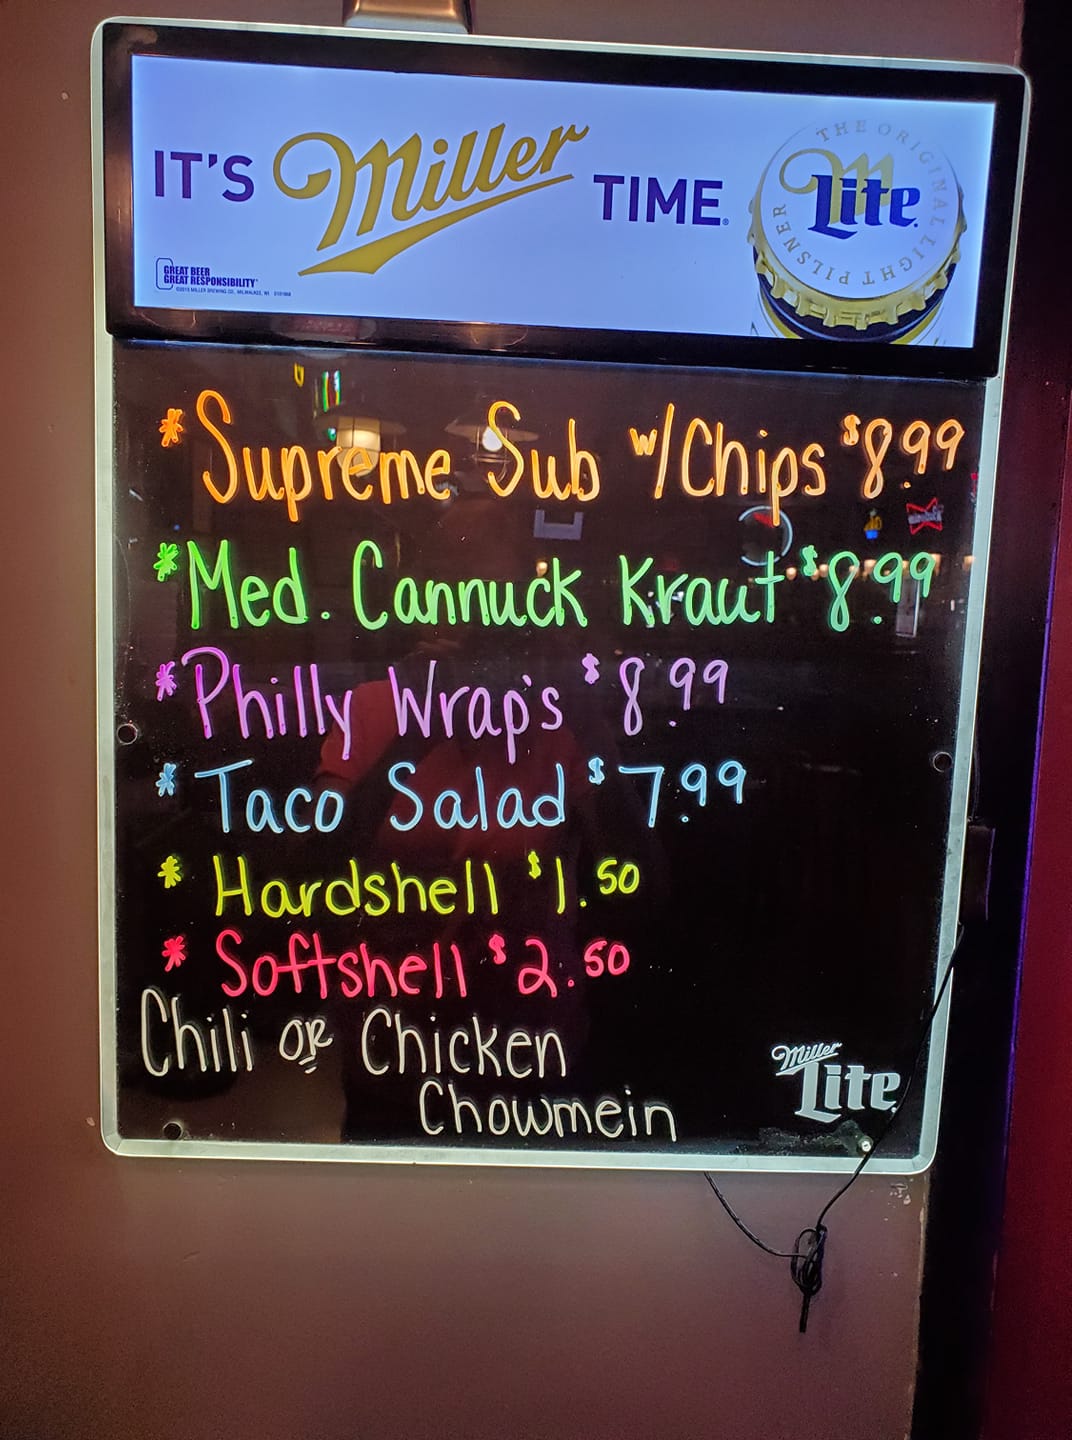 IT'S Miller TIME®
THE ORIGINAL LIGHT PILSNER
Lite
GREAT BEER
GREAT RESPONSIBILITY®
©2015 MILLER BREWING CO., MILWAUKEE, WI
* Supreme Sub w/Chips $8.99
* Med. Cannuck Kraut $8.99
* Philly Wrap's $8.99
* Taco Salad $7.99
* Hardshell $1.50
* Softshell $2.50
Chili OR Chicken
Chowmein
Miller
Lite